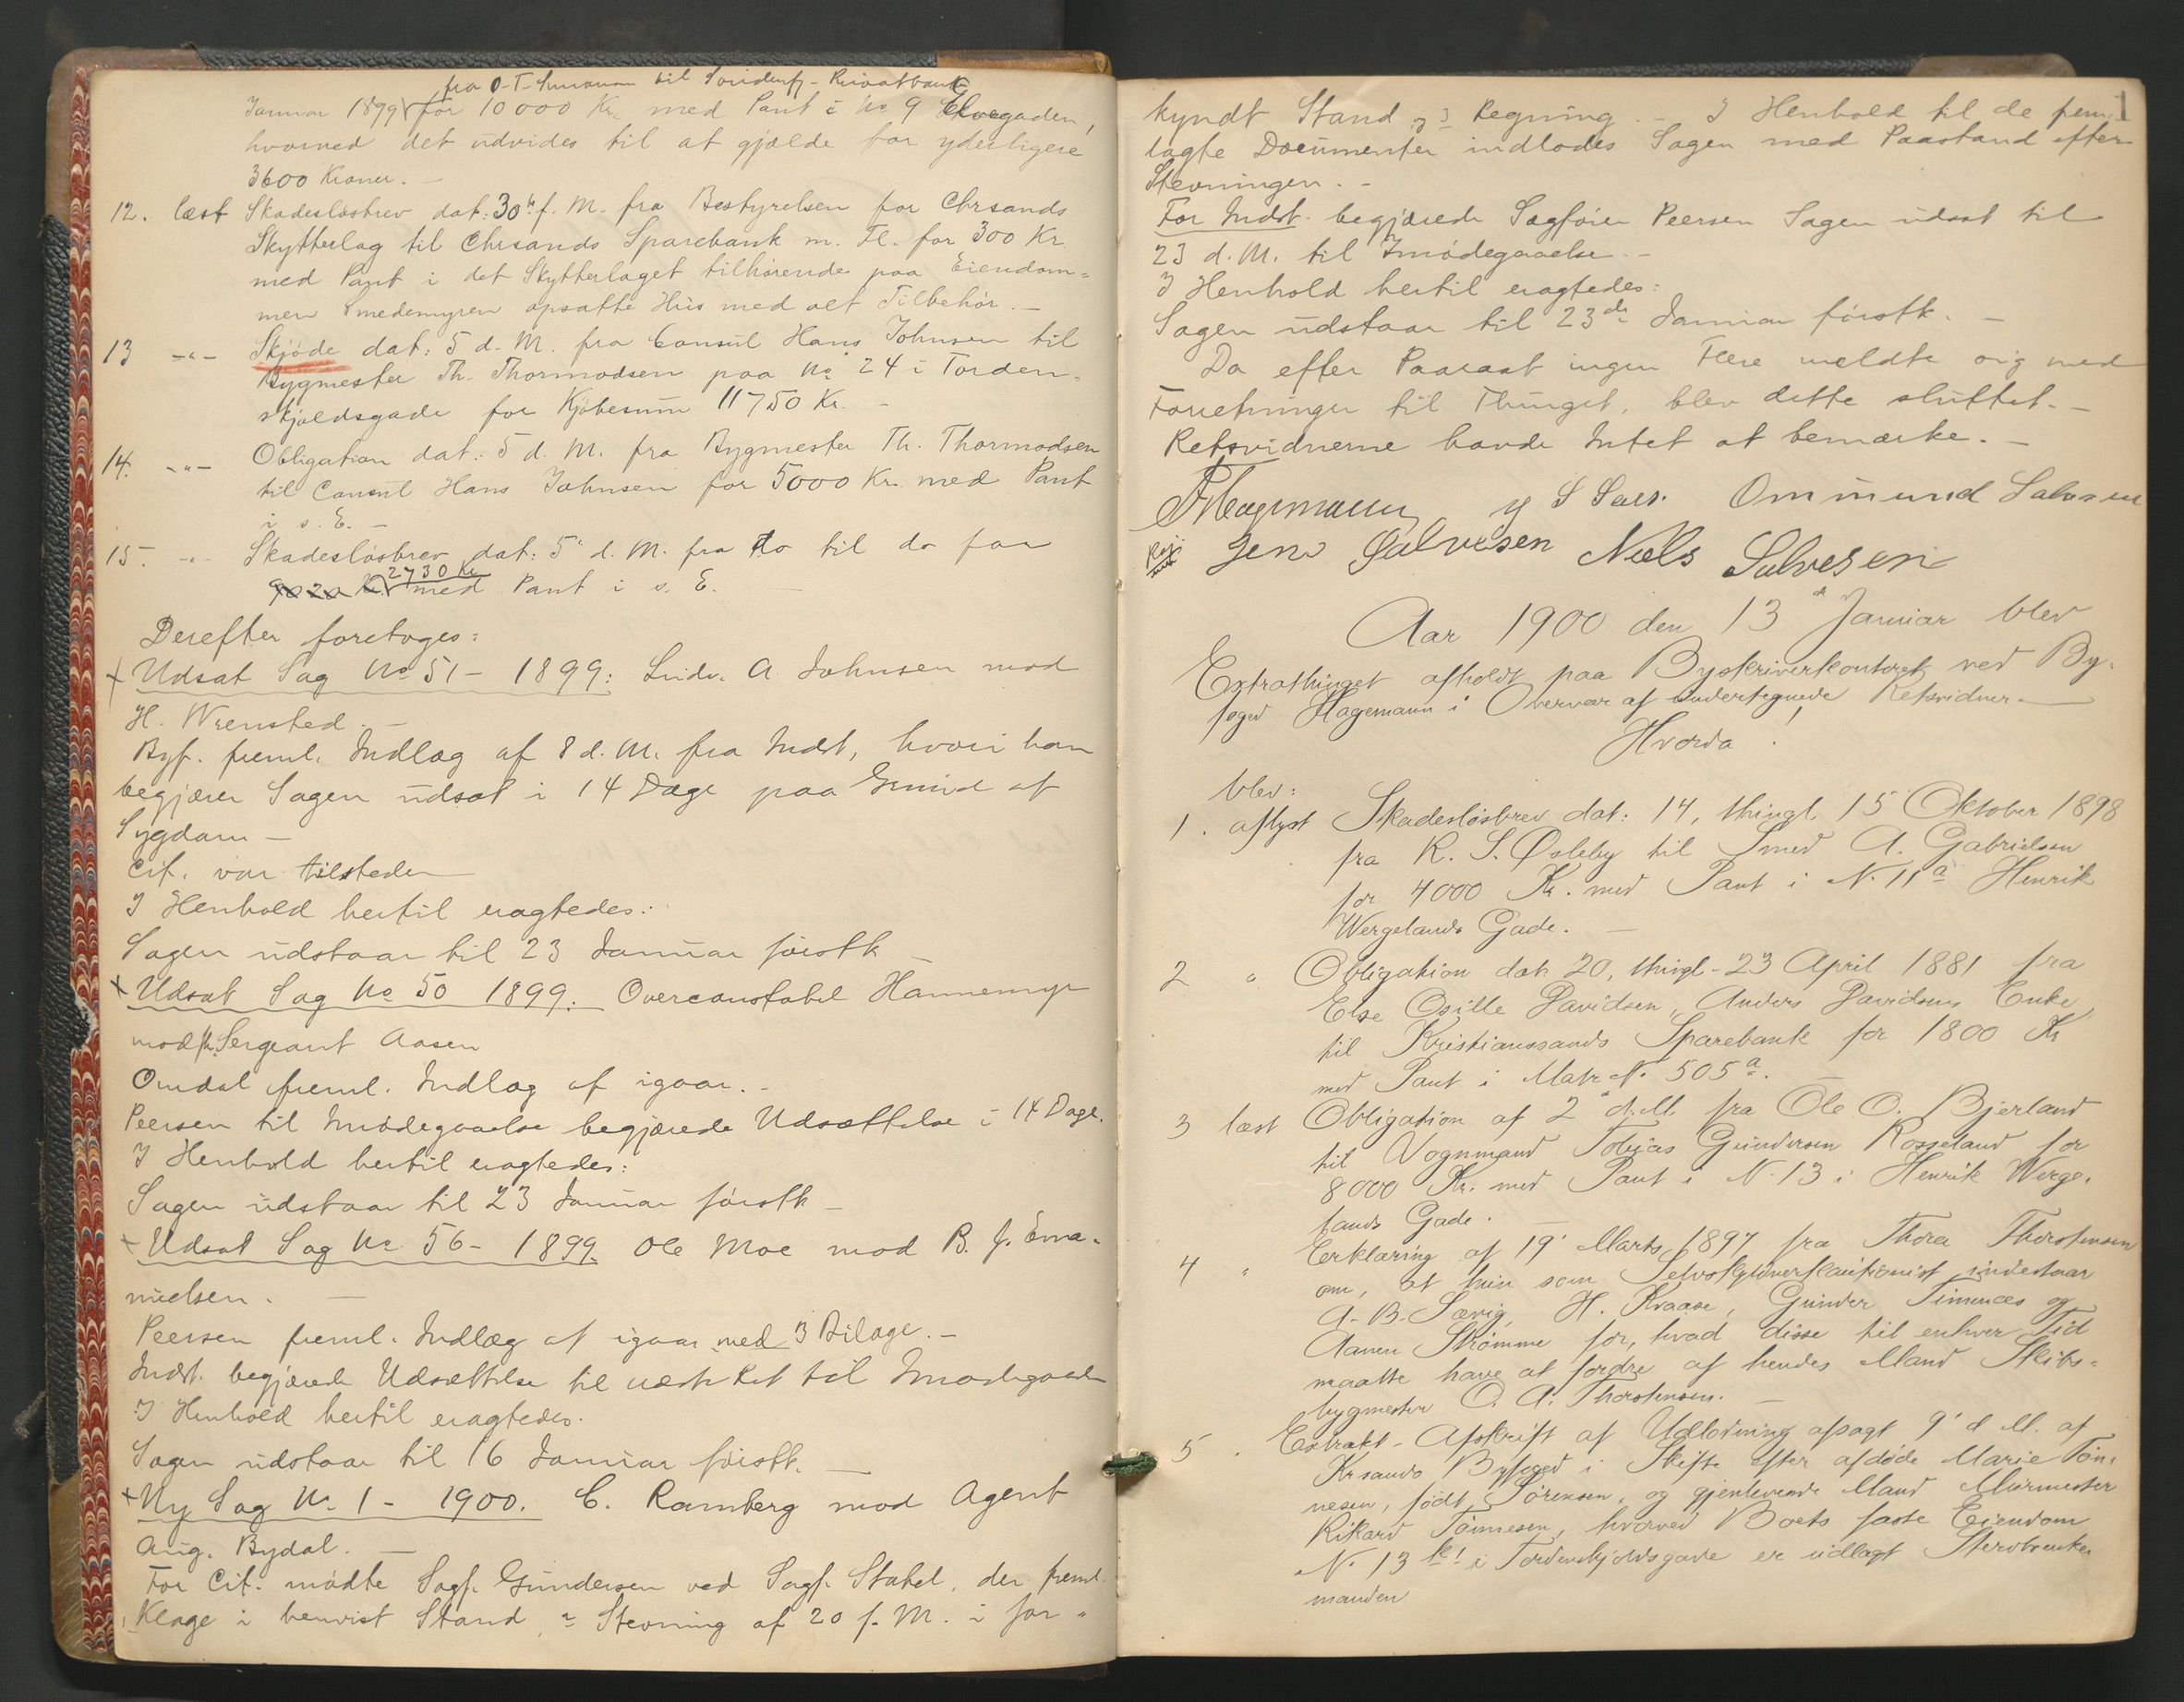 fra O. T. til Privatbank
Januar 1899 for 10 000 Kr. med Pant i No 9 Elvegaden,
hvorved det udvides til at gjælde for yderligere
3600 Kroner. —
12. læst Skadesløsbrev dat: 30te f. M. fra Bestyrelsen for Chrsands
Skytterlag til Chrsands Sparebank m. Fl. for 300 Kr
med Pant i det Skytterlaget tilhørende paa Eiendom=
men Smedemyren opsatte Hus med alt Tilbehør. —
13 -"- Skjøde dat: 5 d. M. fra Consul Hans Johnsen til
Bygmester Th. Thormodsen paa No 24 i Torden-
skjoldsgade for Kjøbesum 11750 Kr. —
14. -"- Obligation dat: 5 d. M. fra Bygmester Th. Thormodsen
til Consul Hans Johnsen for 5000 Kr. med Pant
i s. E. —
15. -"- Skadesløsbrev dat: 5 d. M. fra do til do for
2730 Kr
med Pant i s. E. —
Derefter foretoges:
+ Udsat Sag No 51 - 1899: A. Johnsen mod
H. Wrensted. —
Byf. freml. Indlæg af 8 d. M. fra Indst, hvori han
begjærer Sagen udsat i 14 Dage paa Grund af
Sygdom —
Cit. var tilstede
I Henhold hertil eragtedes:
Sagen udstaar til 23 Januar førstk —
+ Udsat Sag No 50 1899: Overconstabel Hannemyr
mod Sergeant Aasen
Omdal freml. Indlæg af igaar. -
Peersen til Imødegaaelse begjærede Udsættelse i 14 Dage.
I Henhold hertil eragtedes:
Sagen udstaar til 23 Januar førstk —
+ Udsat Sag No 56 - 1899. Ole Moe mod B. J. Ema-
nuelsen. —
Peersen freml. Indlæg af igaar med 3 Bilage. —
Indst. begjærede Udsættelse til næste Ret til Imødegaaelse
I Henhold hertil eragtedes.
Sagen udstaar til 16 Januar førstk. —
+ Ny Sag No 1 - 1900. C. Ramberg mod Agent
Aug. Bydal. —
For Cit. mødte Sagf. Gundersen ved Sagf. Stabel, der freml.
Klage i henvist Stand, 2 Stevning af 20 f. M. i for "
1
kyndt Stand og 3 Regning. — I Henhold til de frem-
lagte Documenter indlodes Sagen med Paastand efter
Stevningen. —
For Indst. begjærede Sagfører Peersen Sagen udsat til
23 d. M. til Imødegaaelse. —
I Henhold hertil eragtedes:
Sagen udstaar til 23de Januar førstk. —
Da efter Paaraab ingen Flere meldte sig med
Forretninger til Thinget, blev dette sluttet. —
Retsvidnerne havde Intet at bemærke. —
Hagemann Ommund Salvesen
Jens Salvesen Niels Salvesen
Aar 1900 den 13 Januar blev
Extrathinget afholdt paa Byskriverkontoret ved By-
foged Hagemann i Overvær af undertegnede Retsvidner. —
Hvorda!
blev:
1. aflyst Skadesløsbrev dat: 14, thingl. 15 Oktober 1898
fra R. S. Øsleby til Smed A. Gabrielsen
for 4000 Kr. med Pant i N. 11a Henrik
Wergelands Gade. —
2 " Obligation dat. 20, thingl. 23 April 1881 fra
Else Osille Davidsen, Anders Davidsens Enke,
til Kristianssands Sparebank for 1800 Kr
med Pant i Matr. N. 505a. —
3 læst Obligation af 2 d. M. fra Ole O. Bjerland
til Vognmand Tobias Gundersen Rosseland for
8000 Kr. med Pant i N. 13 i Henrik Werge-
lands Gade. —
4 " Erklæring af 19' Marts 1897 fra Thora Thorstensen
om, at hun som Selvskyldnerkautionist indestaar
A. B. Særvig, H. Kraase, Gunder Timenæs og
Aanen Strømme for, hvad disse til enhver Tid
maatte have at fordre af hendes Mand Skibs=
bygmester O. A. Thorstensen. —
5 . Extrakt-Afskrift af Udlodning afsagt 9' d M. af
Krsands Byfoged i Skifte efter afdøde Marie Tøn-
nesen, født Sørensen, og gjenlevende Mand Murmester
Rikard Tønnesen, hvorved Boets faste Eiendom
N. 13 i Tordenskjoldsgade er udlagt Stervboenke-
manden